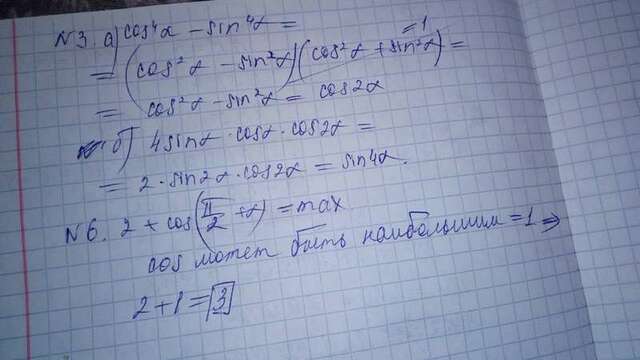 N3. а) cos⁴α − sin⁴α =
= (cos²α − sin²α)(cos²α + sin²α) =
=1
= cos²α − sin²α = cos2α
б) 4sinα · cosα · cos2α =
= 2 · sin2α · cos2α = sin4α.
N6. 2 + cos(π/2 + α) = max
cos может быть наибольшим = 1 ⇒
2 + 1 = 3